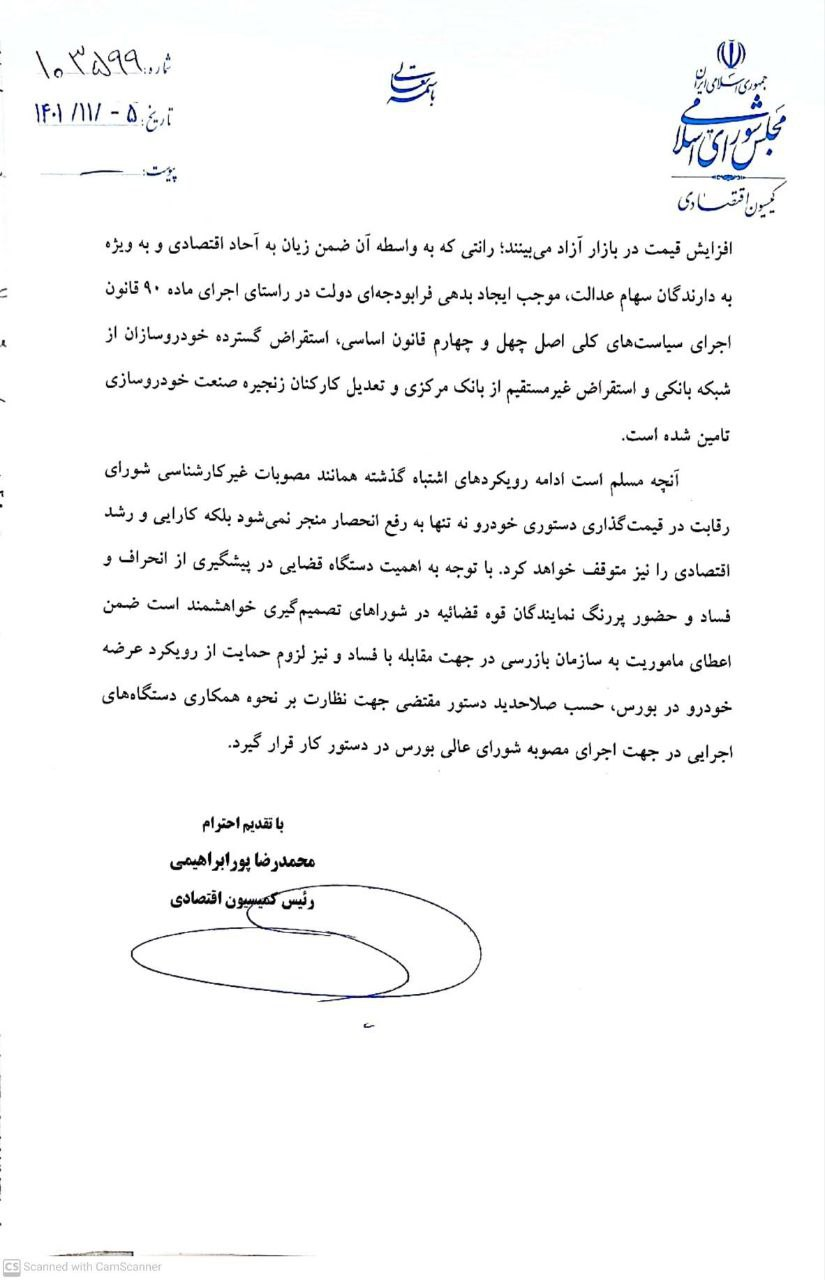 جمهوری اسلامی ایران
مجلس شورای اسلامی
کمیسیون اقتصادی
باسمه تعالی
شماره: ۱۰۳۵۹۹
تاریخ: ۵ - /۱۱/ ۱۴۰۱
پیوست: —
افزایش قیمت در بازار آزاد می‌بینند؛ رانتی که به واسطه آن ضمن زیان به آحاد اقتصادی و به ویژه
به دارندگان سهام عدالت، موجب ایجاد بدهی فرابودجه‌ای دولت در راستای اجرای ماده ۹۰ قانون
اجرای سیاست‌های کلی اصل چهل و چهارم قانون اساسی، استقراض گسترده خودروسازان از
شبکه بانکی و استقراض غیرمستقیم از بانک مرکزی و تعدیل کارکنان زنجیره صنعت خودروسازی
تامین شده است.
آنچه مسلم است ادامه رویکردهای اشتباه گذشته همانند مصوبات غیرکارشناسی شورای
رقابت در قیمت‌گذاری دستوری خودرو نه تنها به رفع انحصار منجر نمی‌شود بلکه کارایی و رشد
اقتصادی را نیز متوقف خواهد کرد. با توجه به اهمیت دستگاه قضایی در پیشگیری از انحراف و
فساد و حضور پررنگ نمایندگان قوه قضائیه در شوراهای تصمیم‌گیری خواهشمند است ضمن
اعطای ماموریت به سازمان بازرسی در جهت مقابله با فساد و نیز لزوم حمایت از رویکرد عرضه
خودرو در بورس، حسب صلاحدید دستور مقتضی جهت نظارت بر نحوه همکاری دستگاه‌های
اجرایی در جهت اجرای مصوبه شورای عالی بورس در دستور کار قرار گیرد.
با تقدیم احترام
محمدرضا پورابراهیمی
رئیس کمیسیون اقتصادی
CS Scanned with CamScanner